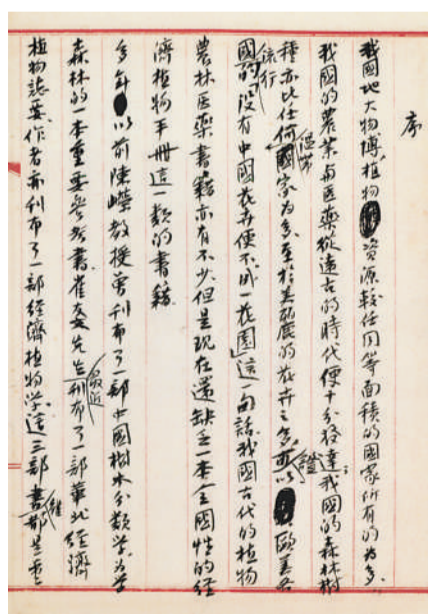 序
我國地大物博,植物資源較任何同等面積的國家所有的為多.
我國的農業與医藥從遠古的時代便十分發達,我國的森林樹
種亦比任何溫帶國家為多,至於美麗的花卉之多,可以證歐美各
國流行的「沒有中國花卉便不成一花園」這一句話.我國古代的植物
農林医藥書籍亦有不少,但是現在還缺乏一本全國性的經
濟植物手冊這一類的書籍.
多年以前陳嶸教授曾刊布了一部中國樹木分類学,為学
森林的一本重要參考書.崔友文先生最近刊布了一部華北經濟
植物誌要.作者亦刊布了一部經濟植物学.這三部書雖都是重